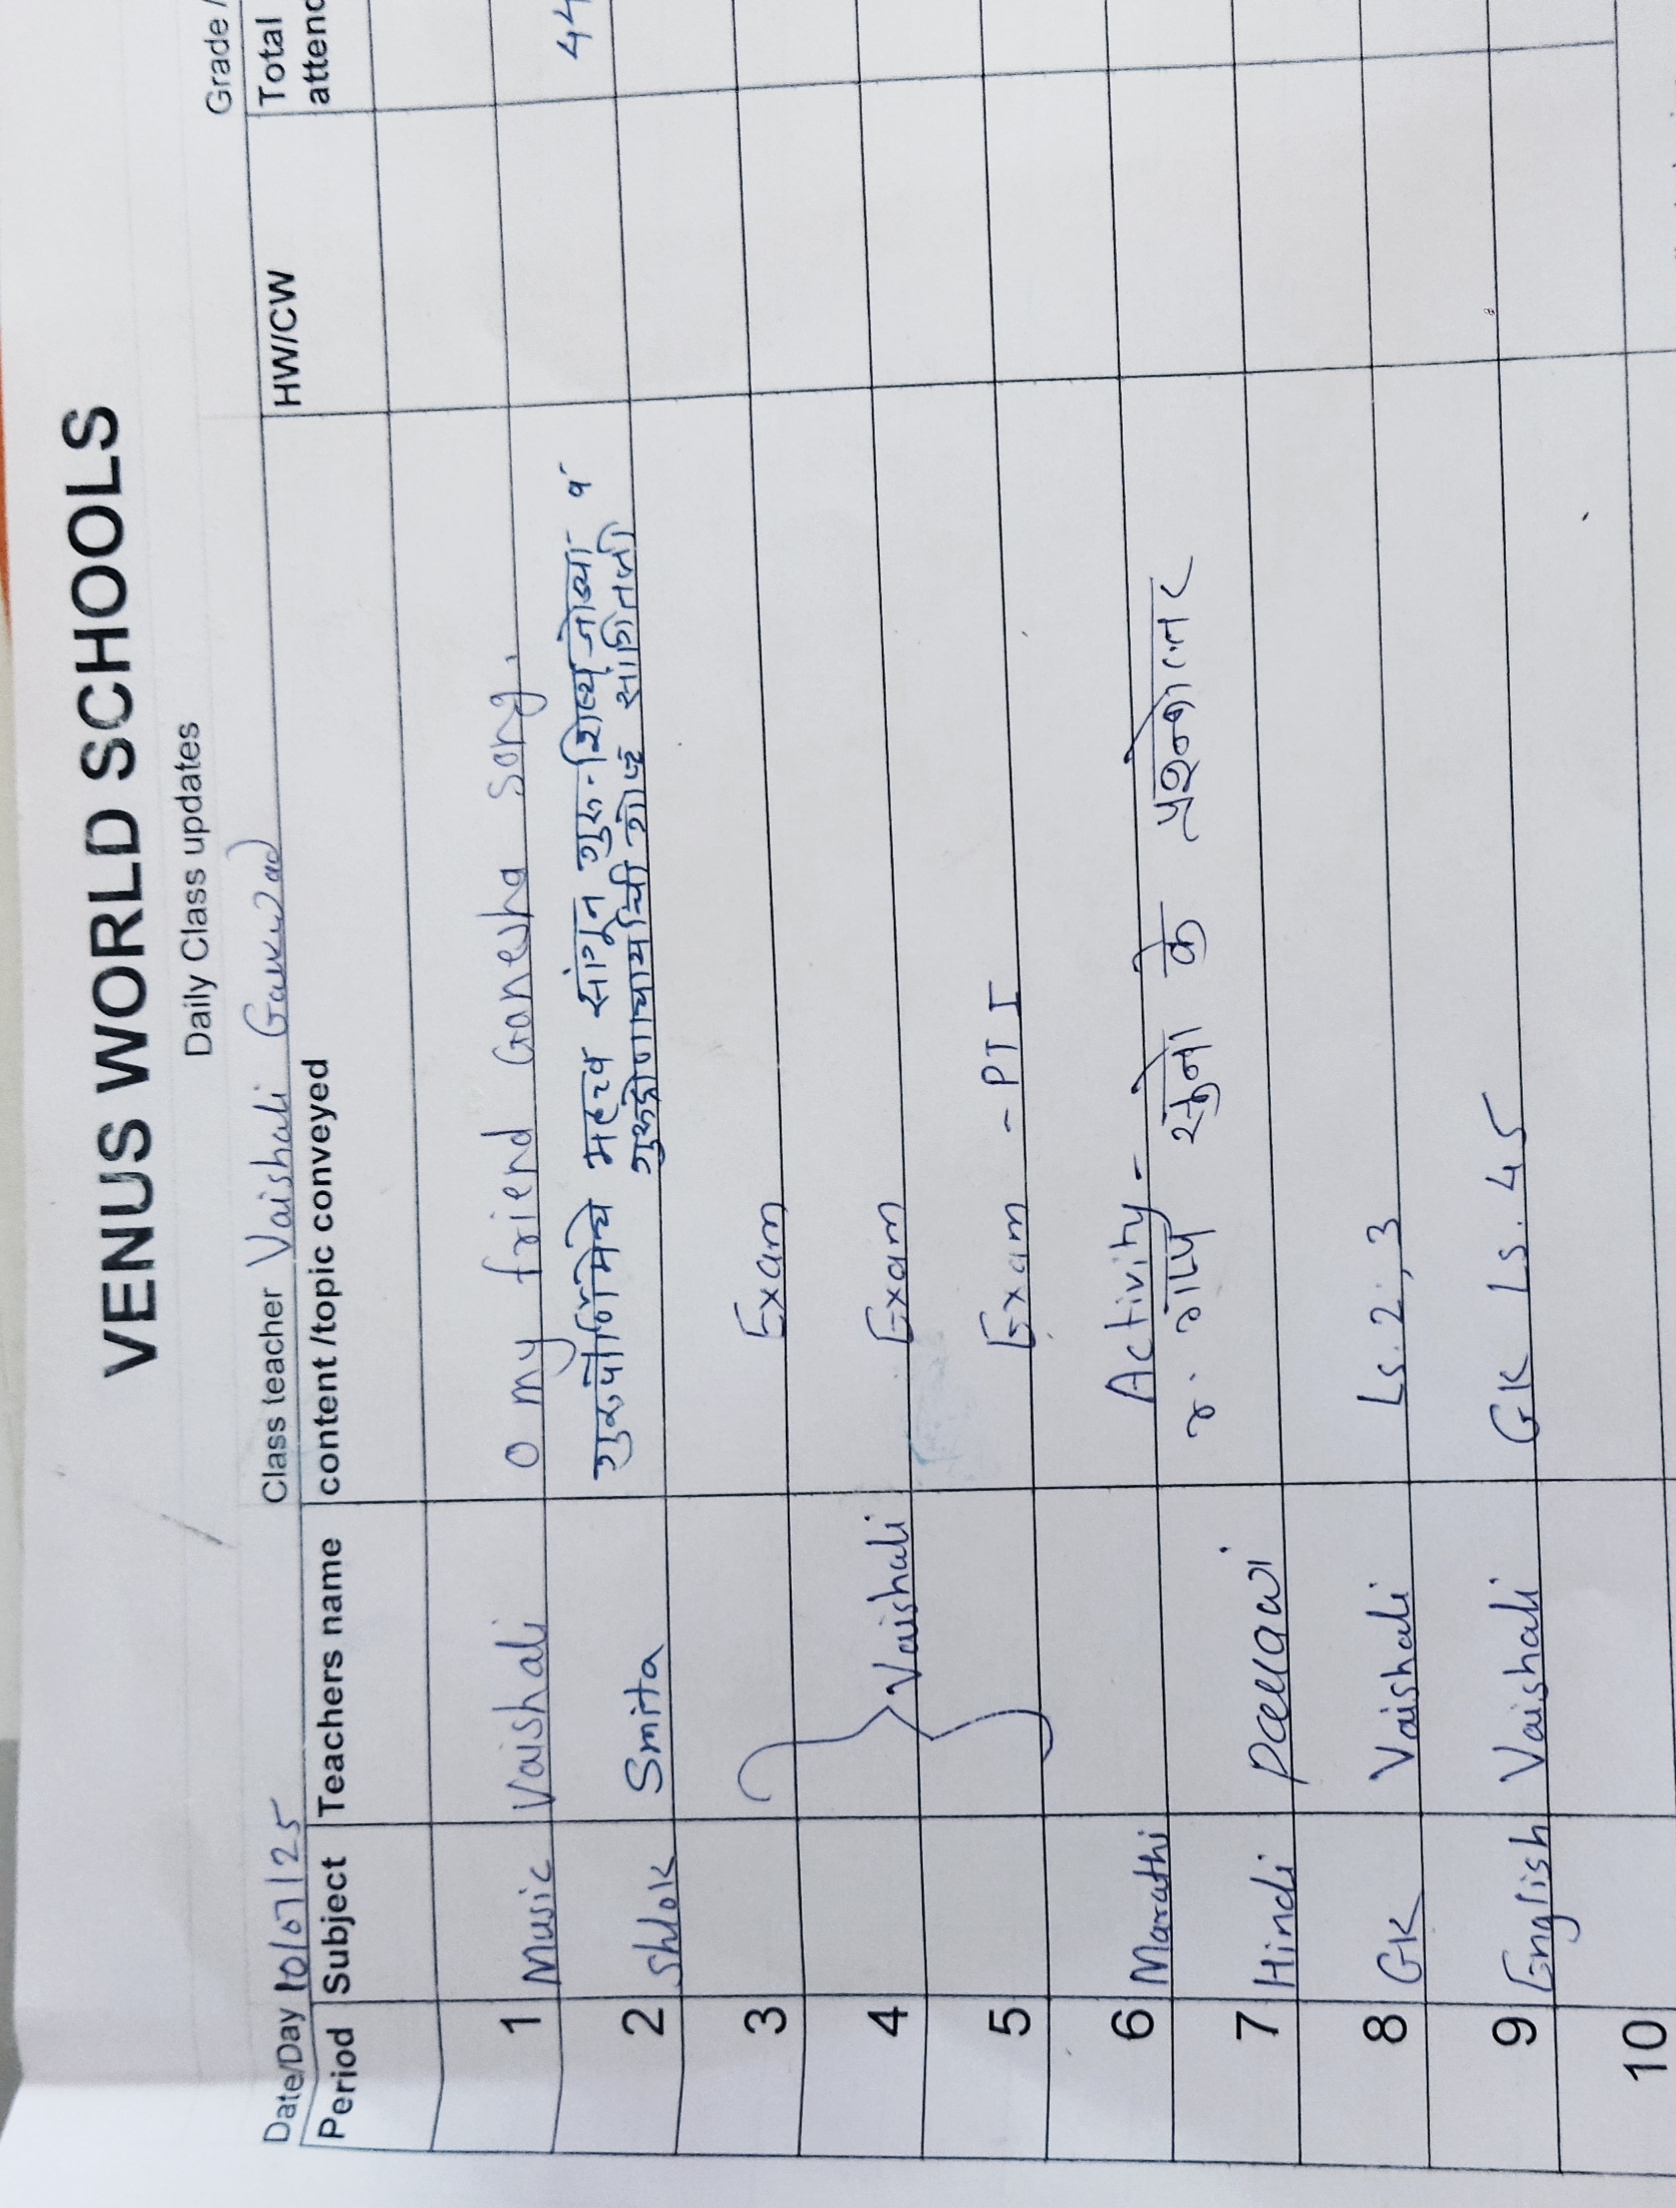 VENUS WORLD SCHOOLS
Daily Class updates
Date/Day 10/07/25 Class teacher Vaishali Gaikwad Grade /
Period Subject Teachers name content /topic conveyed HW/CW Total
attend
1 Music Vaishali O my friend Ganesha song.
44
2 Shlok Smita गुरुपौर्णिमेचे महत्त्व सांगून गुरु-शिष्य जोड्या व
गुरुद्रोणाचार्यांची गोष्ट सांगितली
3 Exam
4 Vaishali Exam
5 Exam - PT I
6 Marathi Activity -
7 Hindi Pallavi के प्रश्नोत्तर
8 GK Vaishali Ls. 2, 3
9 English Vaishali GK Ls. 4, 5
10